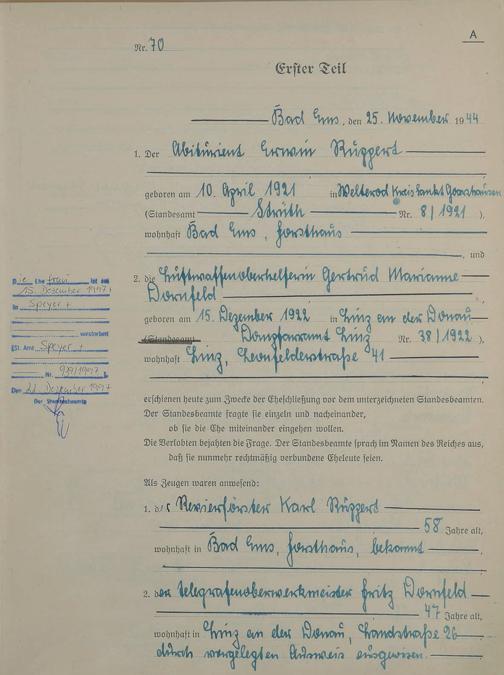 A
Nr. 70
Erster Teil
Bad Ems, den 25. November 1944
1. Der Abiturient Erwin Ruppert
geboren am 10. April 1921 in Welterod Kreis Sankt Goarshausen
(Standesamt Strüth Nr. 8/1921),
wohnhaft Bad Ems, Forsthaus
, und
2. die Luftwaffenoberhelferin Gertrud Marianne
Dornfeld
geboren am 15. Dezember 1922 in Linz an der Donau
(Standesamt Dompfarramt Linz Nr. 38/1922),
wohnhaft Linz, Leonfelderstraße 41
erschienen heute zum Zwecke der Eheschließung vor dem unterzeichneten Standesbeamten.
Der Standesbeamte fragte sie einzeln und nacheinander,
ob sie die Ehe miteinander eingehen wollen.
Die Verlobten bejahten die Frage. Der Standesbeamte sprach im Namen des Reiches aus,
daß sie nunmehr rechtmäßig verbundene Eheleute seien.
Als Zeugen waren anwesend:
1. der Revierförster Karl Ruppert
58 Jahre alt,
wohnhaft in Bad Ems, Forsthaus, bekannt
2. der Telegrafenoberwerkmeister Fritz Dornfeld
47 Jahre alt,
wohnhaft in Linz an der Donau, Landstraße 26
durch vorgelegten Ausweis ausgewiesen.
Die Ehefrau ist am
15. Dezember 1997
in Speyer
verstorben
(St. Amt Speyer
Nr. 939/1997)
Den 22. Dezember 1997
Der Standesbeamte